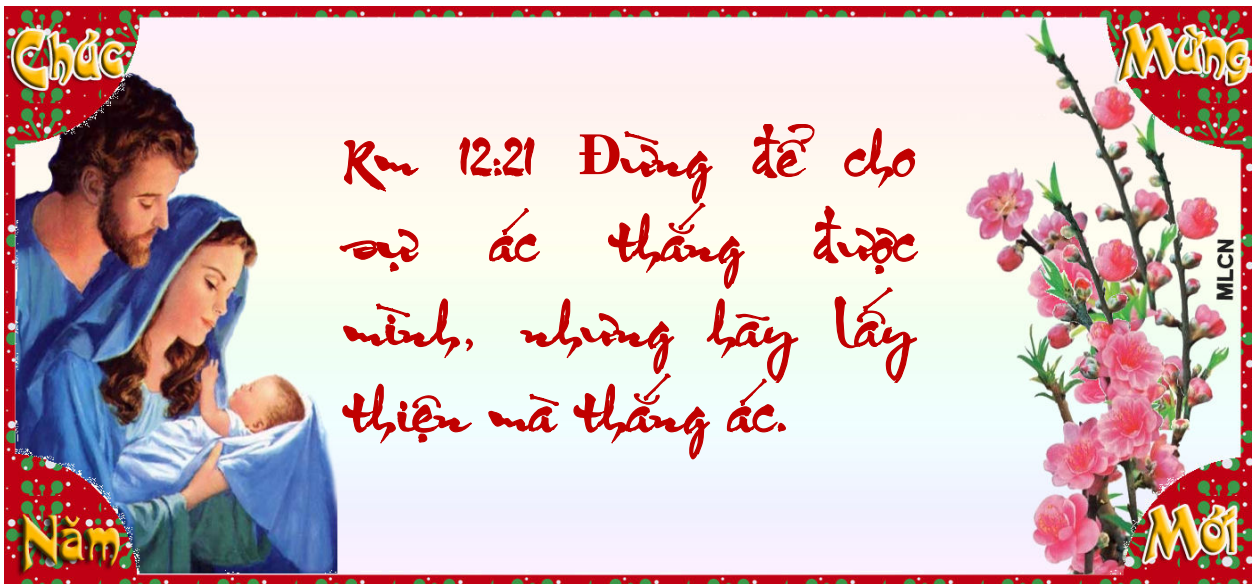 Chúc Mừng
Rm 12:21 Đừng để cho
sự ác thắng được
mình, nhưng hãy lấy
thiện mà thắng ác.
MLCN
Năm Mới